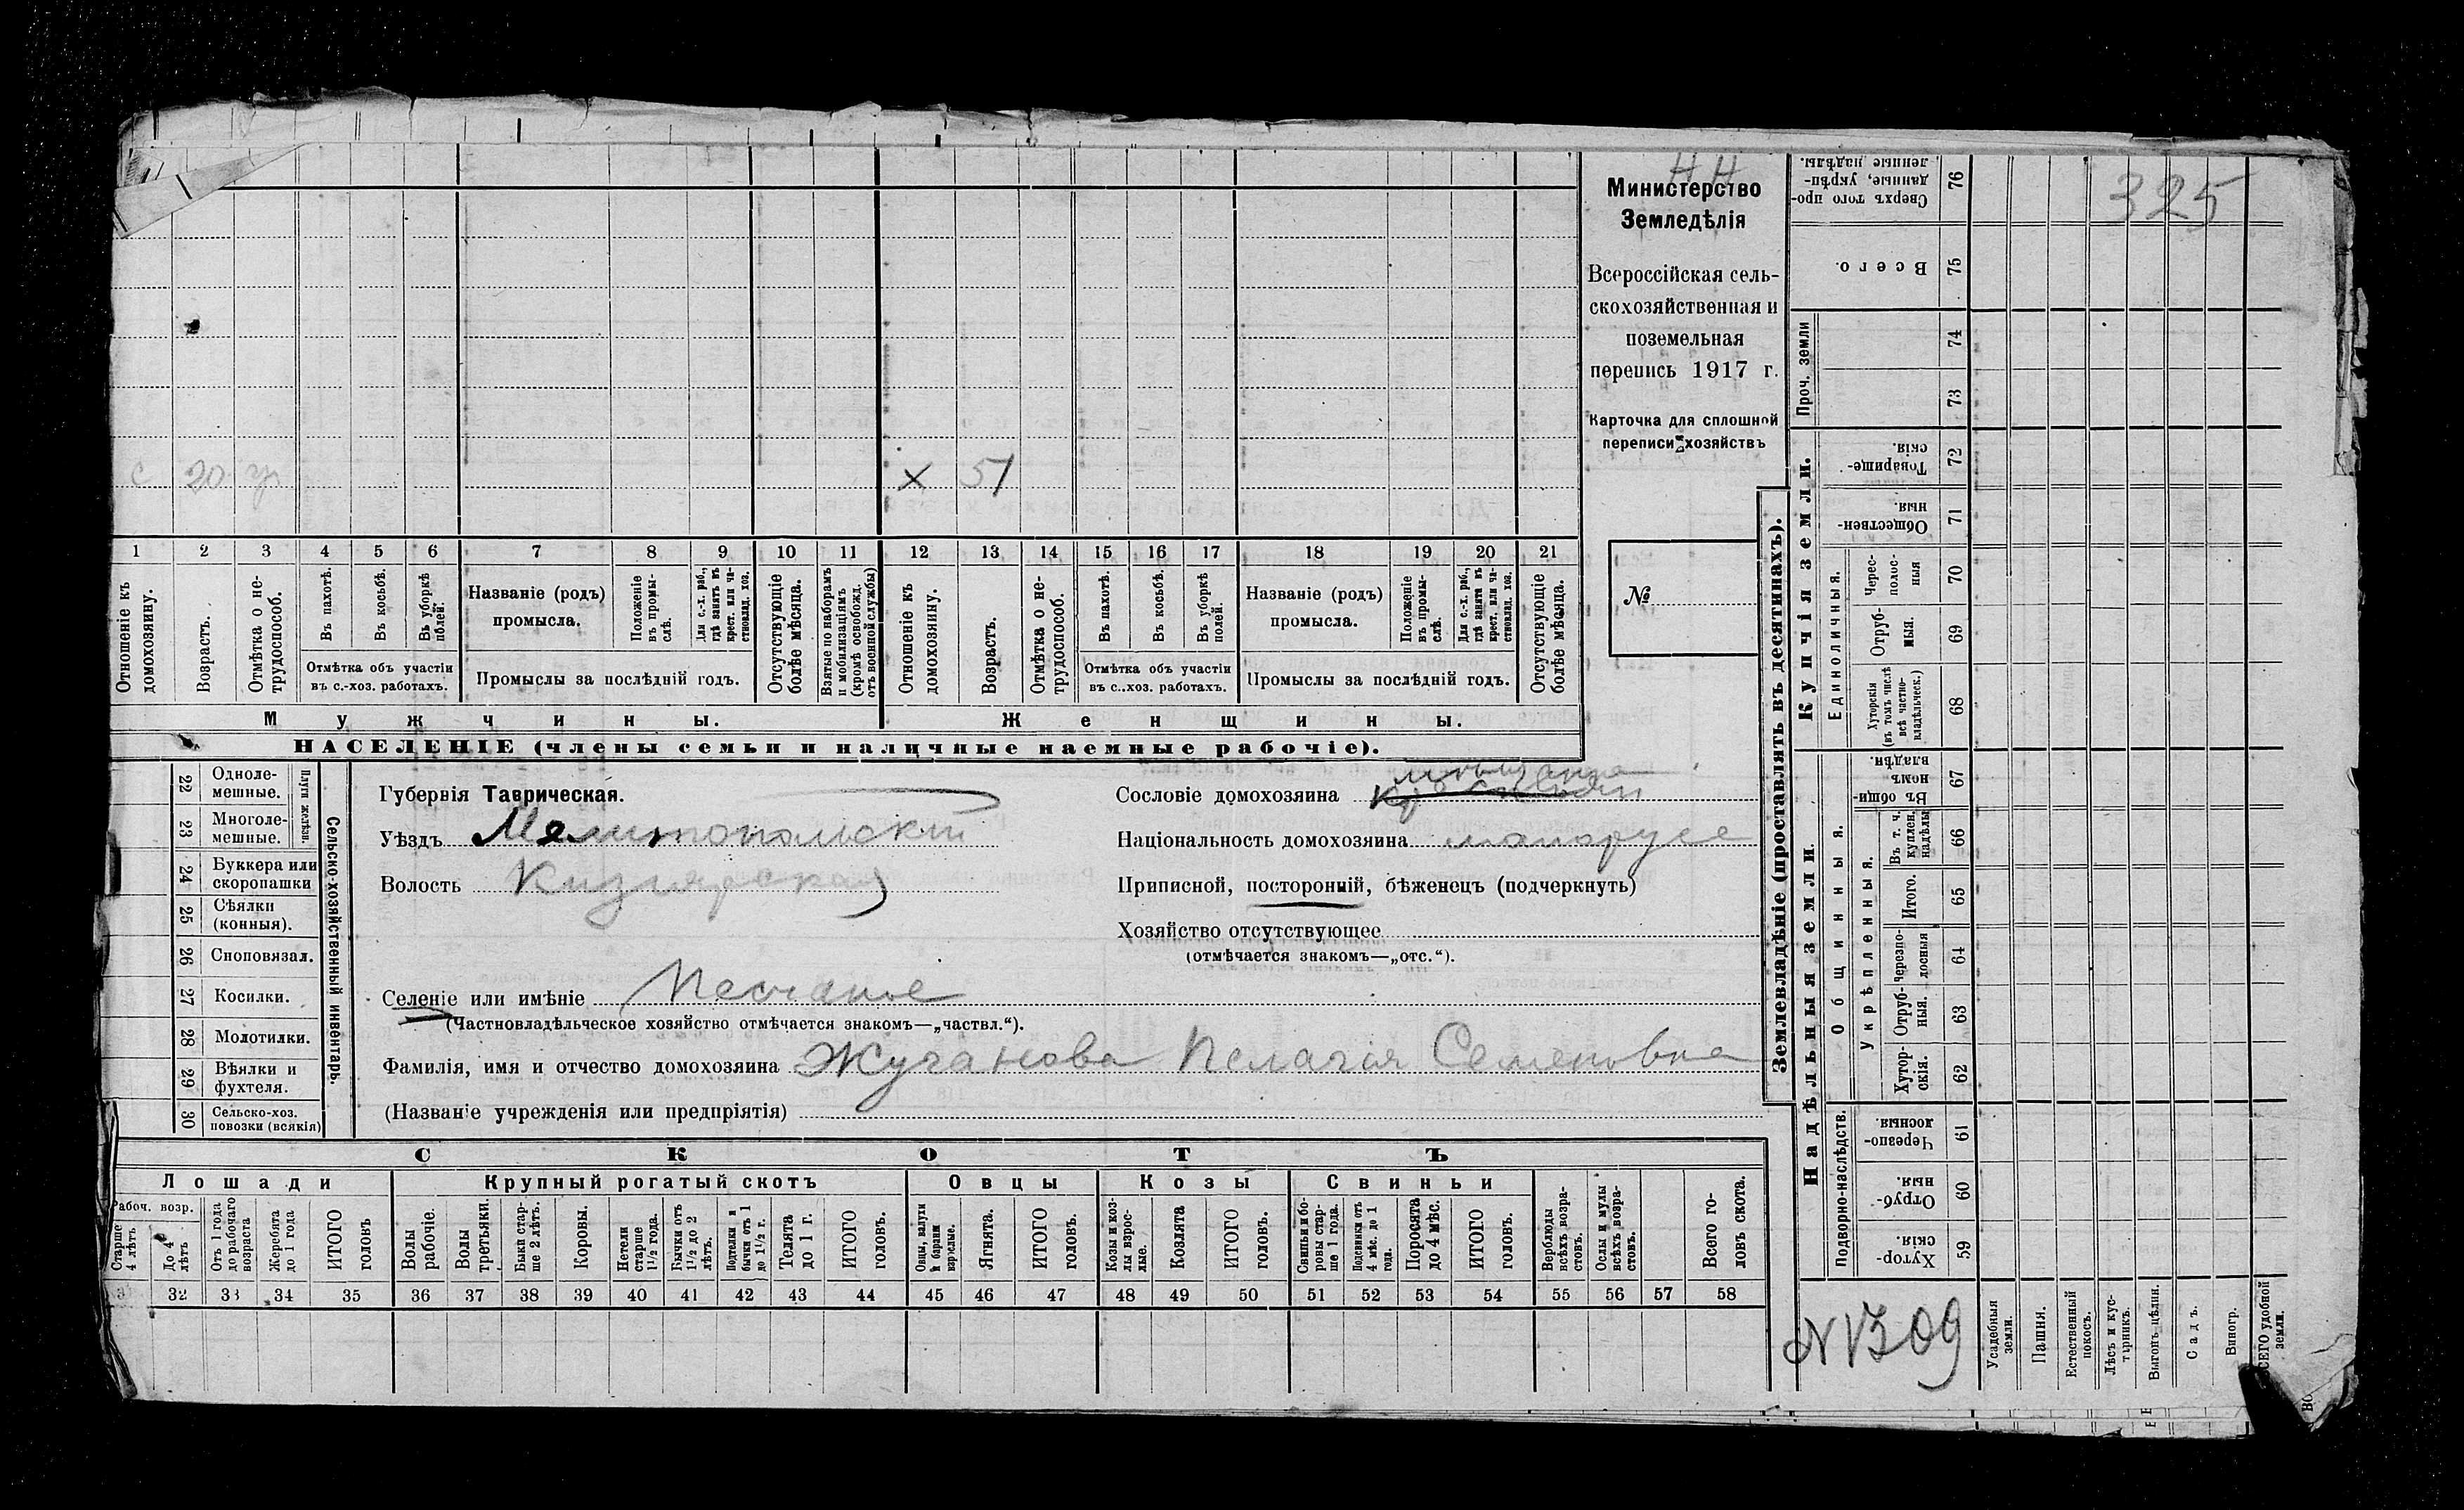 НН
Министерство
Земледѣлія
Всероссійская сель-
скохозяйственная и
поземельная
перепись 1917 г.
Карточка для сплошной
переписи хозяйствъ
№
325
с 20 × 51
1 2 3 4 5 6 7 8 9 10 11 12 13 14 15 16 17 18 19 20 21
Отношеніе къ домохозяину.
Возрастъ.
Отмѣтка о не-трудоспособ.
Въ пахотѣ.
Въ косьбѣ.
Въ уборкѣ полей.
Отмѣтка объ участіи
въ с.-хоз. работахъ.
Названіе (родъ)
промысла.
Положеніе въ промы-слѣ.
Для с.-х. раб., гдѣ занятъ въ крест. или ча-стновлад. хоз.
Промыслы за послѣдній годъ.
Отсутствующіе болѣе мѣсяца.
Взятые по наборамъ и мобилизаціямъ (кромѣ освобожд. отъ военной службы)
Отношеніе къ домохозяину.
Возрастъ.
Отмѣтка о не-трудоспособ.
Въ пахотѣ.
Въ косьбѣ.
Въ уборкѣ полей.
Отмѣтка объ участіи
въ с.-хоз. работахъ.
Названіе (родъ)
промысла.
Положеніе въ промы-слѣ.
Для с.-х. раб., гдѣ занята въ крест. или ча-стновлад. хоз.
Промыслы за послѣдній годъ.
Отсутствующіе болѣе мѣсяца.
Мужчины.
Женщины.
НАСЕЛЕНІЕ (члены семьи и наличные наемные рабочіе).
22 Одноле-мешные.
23 Многоле-мешные.
Плуги желѣзн.
24 Буккера или скоропашки
25 Сѣялки (конныя).
26 Сноповязал.
27 Косилки.
28 Молотилки.
29 Вѣялки и фухтеля.
30 Сельско-хоз. повозки (всякія)
Сельско-хозяйственный инвентарь.
Губернія Таврическая.
Уѣздъ Мелитопольскій
Волость Кизиярская
Селеніе или имѣніе Песчаное
(Частновладѣльческое хозяйство отмѣчается знакомъ—„частвл.“).
Фамилія, имя и отчество домохозяина Жуганова Пелагія Семеновна
(Названіе учрежденія или предпріятія)
мѣщанка
Сословіе домохозяина
Національность домохозяина малорусс
Приписной, посторонній, бѣженецъ (подчеркнуть)
Хозяйство отсутствующее
(отмѣчается знакомъ—„отс.“).
СКОТЪ
Лошади
Крупный рогатый скотъ
Овцы
Козы
Свиньи
Рабоч. возр.
Старше 4 лѣтъ
До 4 лѣтъ
Отъ 1 года до рабочаго возраста
Жеребята до 1 года
ИТОГО головъ
Волы рабочіе.
Волы третьяки.
Быки стар-ше 2 лѣтъ.
Коровы.
Нетели старше 1½ года.
Бычки отъ 1½ до 2 лѣтъ.
Подтелки и бычки отъ 1 до 1½ г.
Телята до 1 г.
ИТОГО головъ.
Овцы, валухи и бараны взрослые.
Ягнята.
ИТОГО головъ.
Козы и коз-лы взрос-лые.
Козлята
ИТОГО головъ.
Свиньи и бо-ровы стар-ше 1 года.
Подсвинки отъ 4 мѣс. до 1 года.
Поросята до 4 мѣс.
ИТОГО головъ.
Верблюды всѣхъ возра-стовъ.
Ослы и мулы всѣхъ возра-стовъ.
Всего го-ловъ скота.
32 33 34 35 36 37 38 39 40 41 42 43 44 45 46 47 48 49 50 51 52 53 54 55 56 57 58
Землевладѣніе (проставлять въ десятинахъ).
Сверхъ того про-данные, укрѣп-ленные надѣлы. 76
Всего. 75
Проч. земли
74
73
Купчія земли.
Товарище-скія. 72
Обществен-ныя. 71
Единоличныя.
Черес-полос-ныя 70
Отруб-ныя. 69
Хуторскія (въ томъ числѣ всѣ частно-владѣльческ.) 68
Надѣльныя земли
Общинныя.
Въ общи-номъ владѣн. 67
Укрѣпленныя.
Въ т. ч. куплен. надѣлы 66
Итого. 65
Черезпо-лосныя 64
Отруб-ныя. 63
Хутор-скія. 62
Подворно-наслѣдств.
Черезпо-лосныя. 61
Отруб-ныя. 60
Хутор-скія. 59
N 1309
Усадебныя земли.
Пашня.
Естественный покосъ.
Лѣсъ и кус-тарникъ.
Выгонъ цѣлин.
Садъ.
Виногр.
ВСЕГО удобной земли.